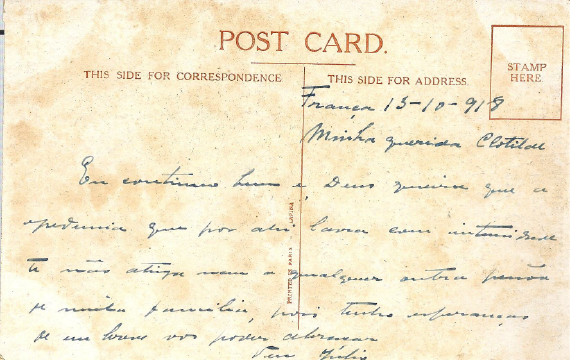 POST CARD.
THIS SIDE FOR CORRESPONDENCE
THIS SIDE FOR ADDRESS.
STAMP
HERE
França 15-10-918
Minha querida Clotilde
Eu continuo bem e Deus queira que a
epedemia que por ahi lavra com intensidade
te não atinja nem a qualquer outra pessôa
de minha familia, pois tenho esperanças
de em breve vos poder abraçar
Teu Júlio
PRINTED IN PARIS